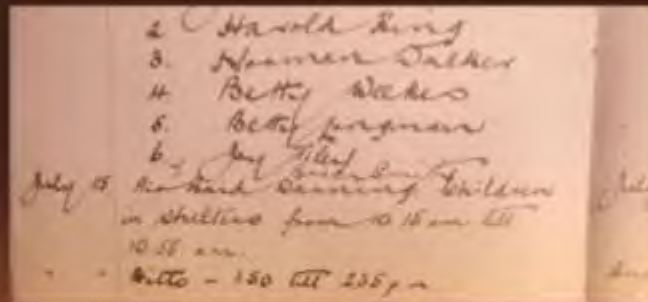 2 Harold King
3. Norman Walker
4. Betty Weekes
5. Betty Jungman
6. Joy
July 15 Air Raid Warning Children
in shelters from 10.15 am till
10.55 am.
" " Ditto - 1.50 till 2.35 p.m
July